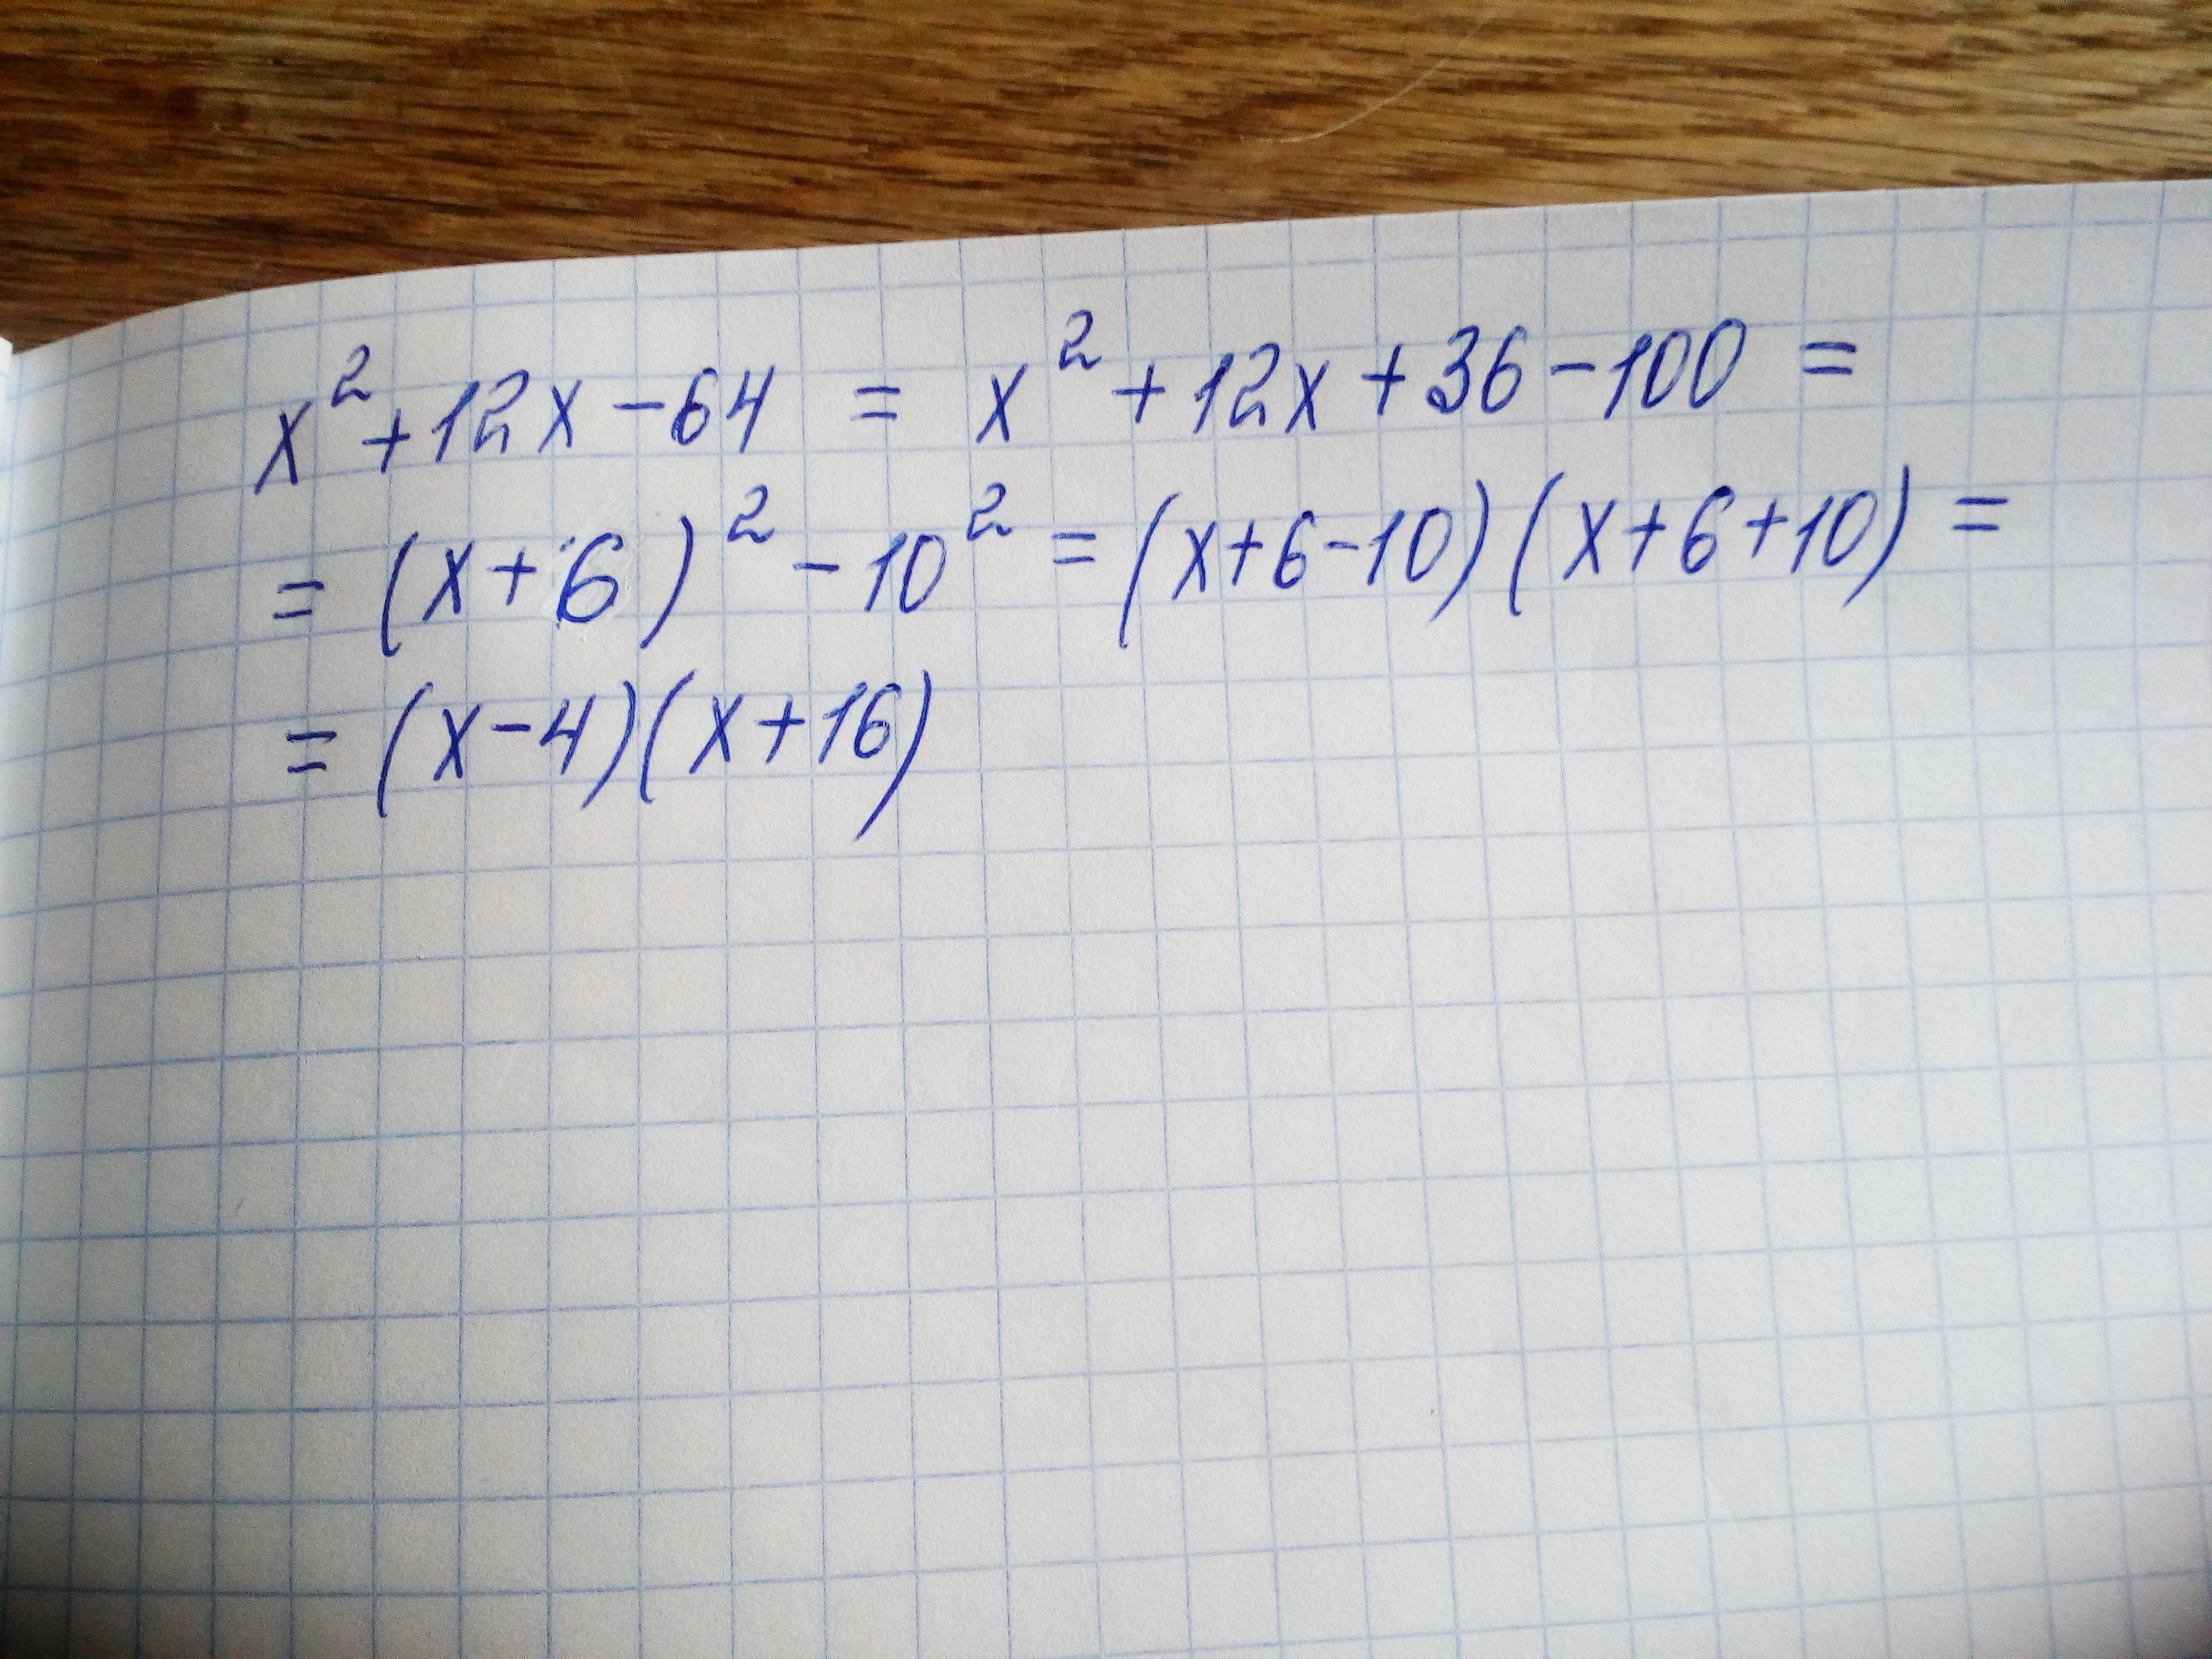 x² + 12x - 64 = x² + 12x + 36 - 100 =
= (x + 6)² - 10² = (x + 6 - 10)(x + 6 + 10) =
= (x - 4)(x + 16)